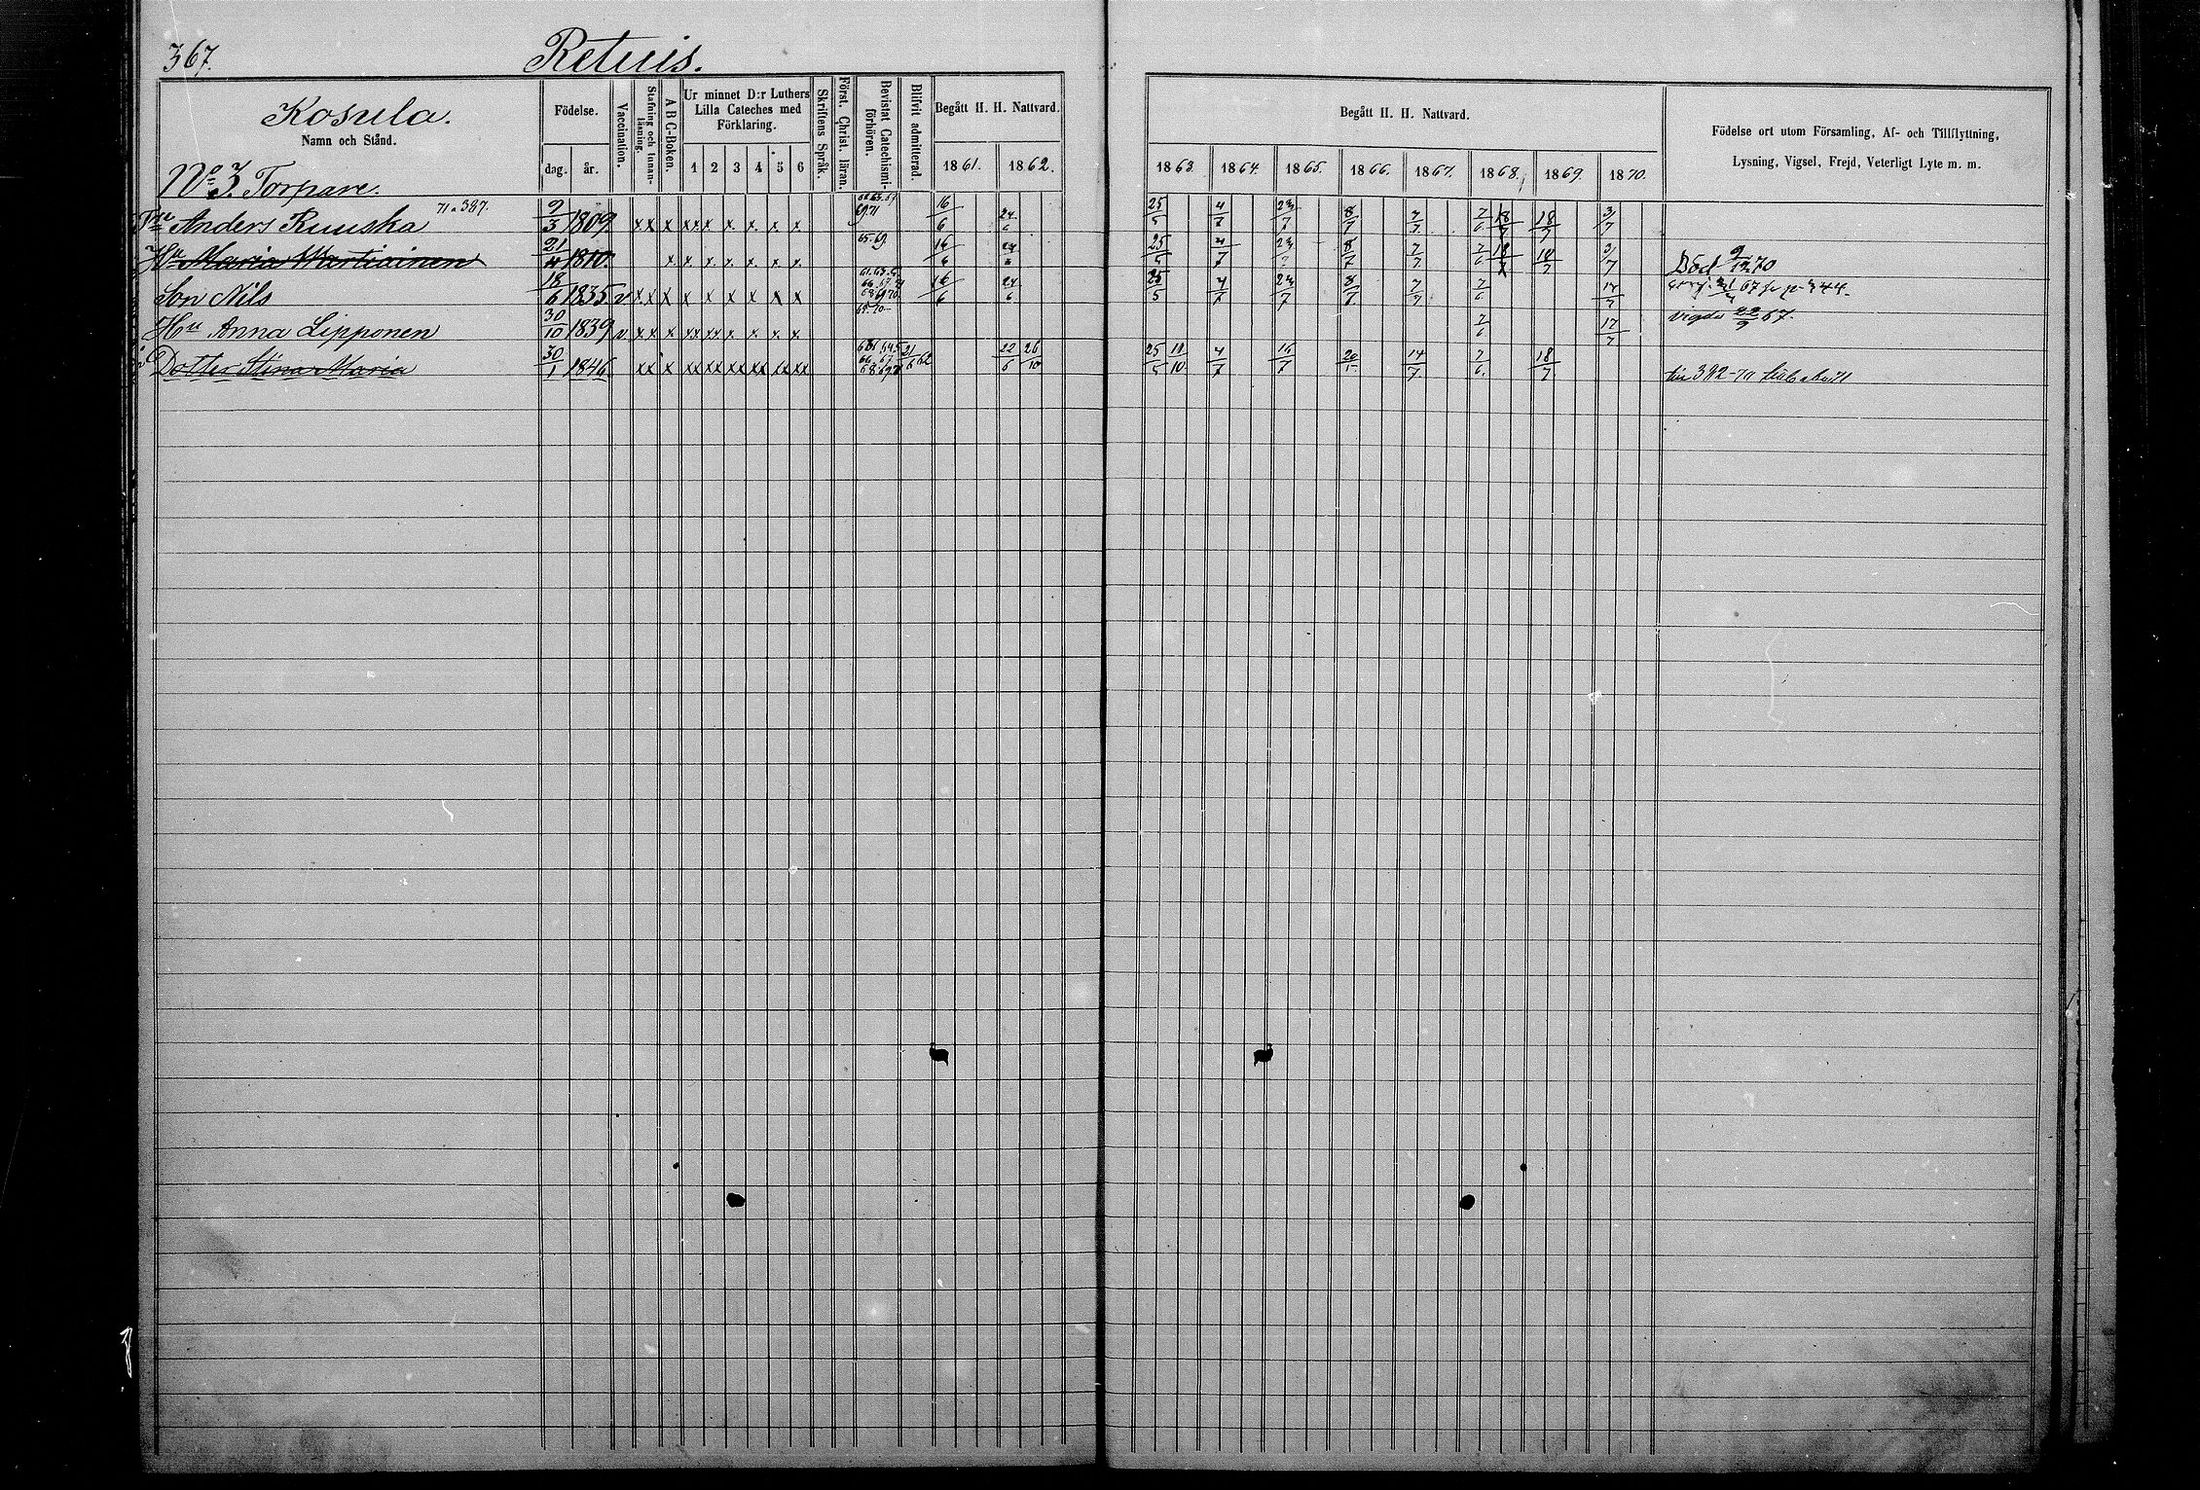 367. Retuis.
Kosula.
Namn och Stånd.
Födelse.
dag. år.
Vaccination.
Stafning och Innanläsning.
A B C-Boken.
Ur minnet D:r Luthers Lilla Cateches med Förklaring.
1 2 3 4 5 6
Skriftens Språk.
Först. Christ. läran.
Bevistat Catechismiförhören.
Blifvit admitterad.
Begått H. H. Nattvard.
1861. 1862.
Begått H. H. Nattvard.
1863. 1864. 1865. 1866. 1867. 1868. 1869. 1870.
Födelse ort utom Församling, Af- och Tillflyttning,
Lysning, Vigsel, Frejd, Veterligt Lyte m. m.
No 3. Torpare.
Anders Ruuska 71 a 387. 9/3 1809 x x x x x x x x x x 16/6 24/6 25/5 4/7 23/7 8/7 7/7 7/6 18/7 18/7 3/7
Hu Maria Martiainen 21/4 1810. x x x x x x x 65. 69. 16/6 24/6 25/5 4/7 23/7 8/7 7/7 7/6 18/7 18/7 3/7 Död 9/12 70
Son Nils 18/6 1835 v x x x x x x x x x 16/6 24/6 25/5 4/7 23/7 8/7 7/7 7/6 17/7 67 p. 344.
Hu Anna Lipponen 30/10 1839 v x x x x x x x x x x x 7/6 17/7 vigde 22/9 67.
Dotter Stina Maria 30/1 1846 x x x x x x x x x x x x x x x 21/6 62 22/6 26/10 25/5 11/10 4/7 16/7 20/5 14/7 7/6 18/7 392-70